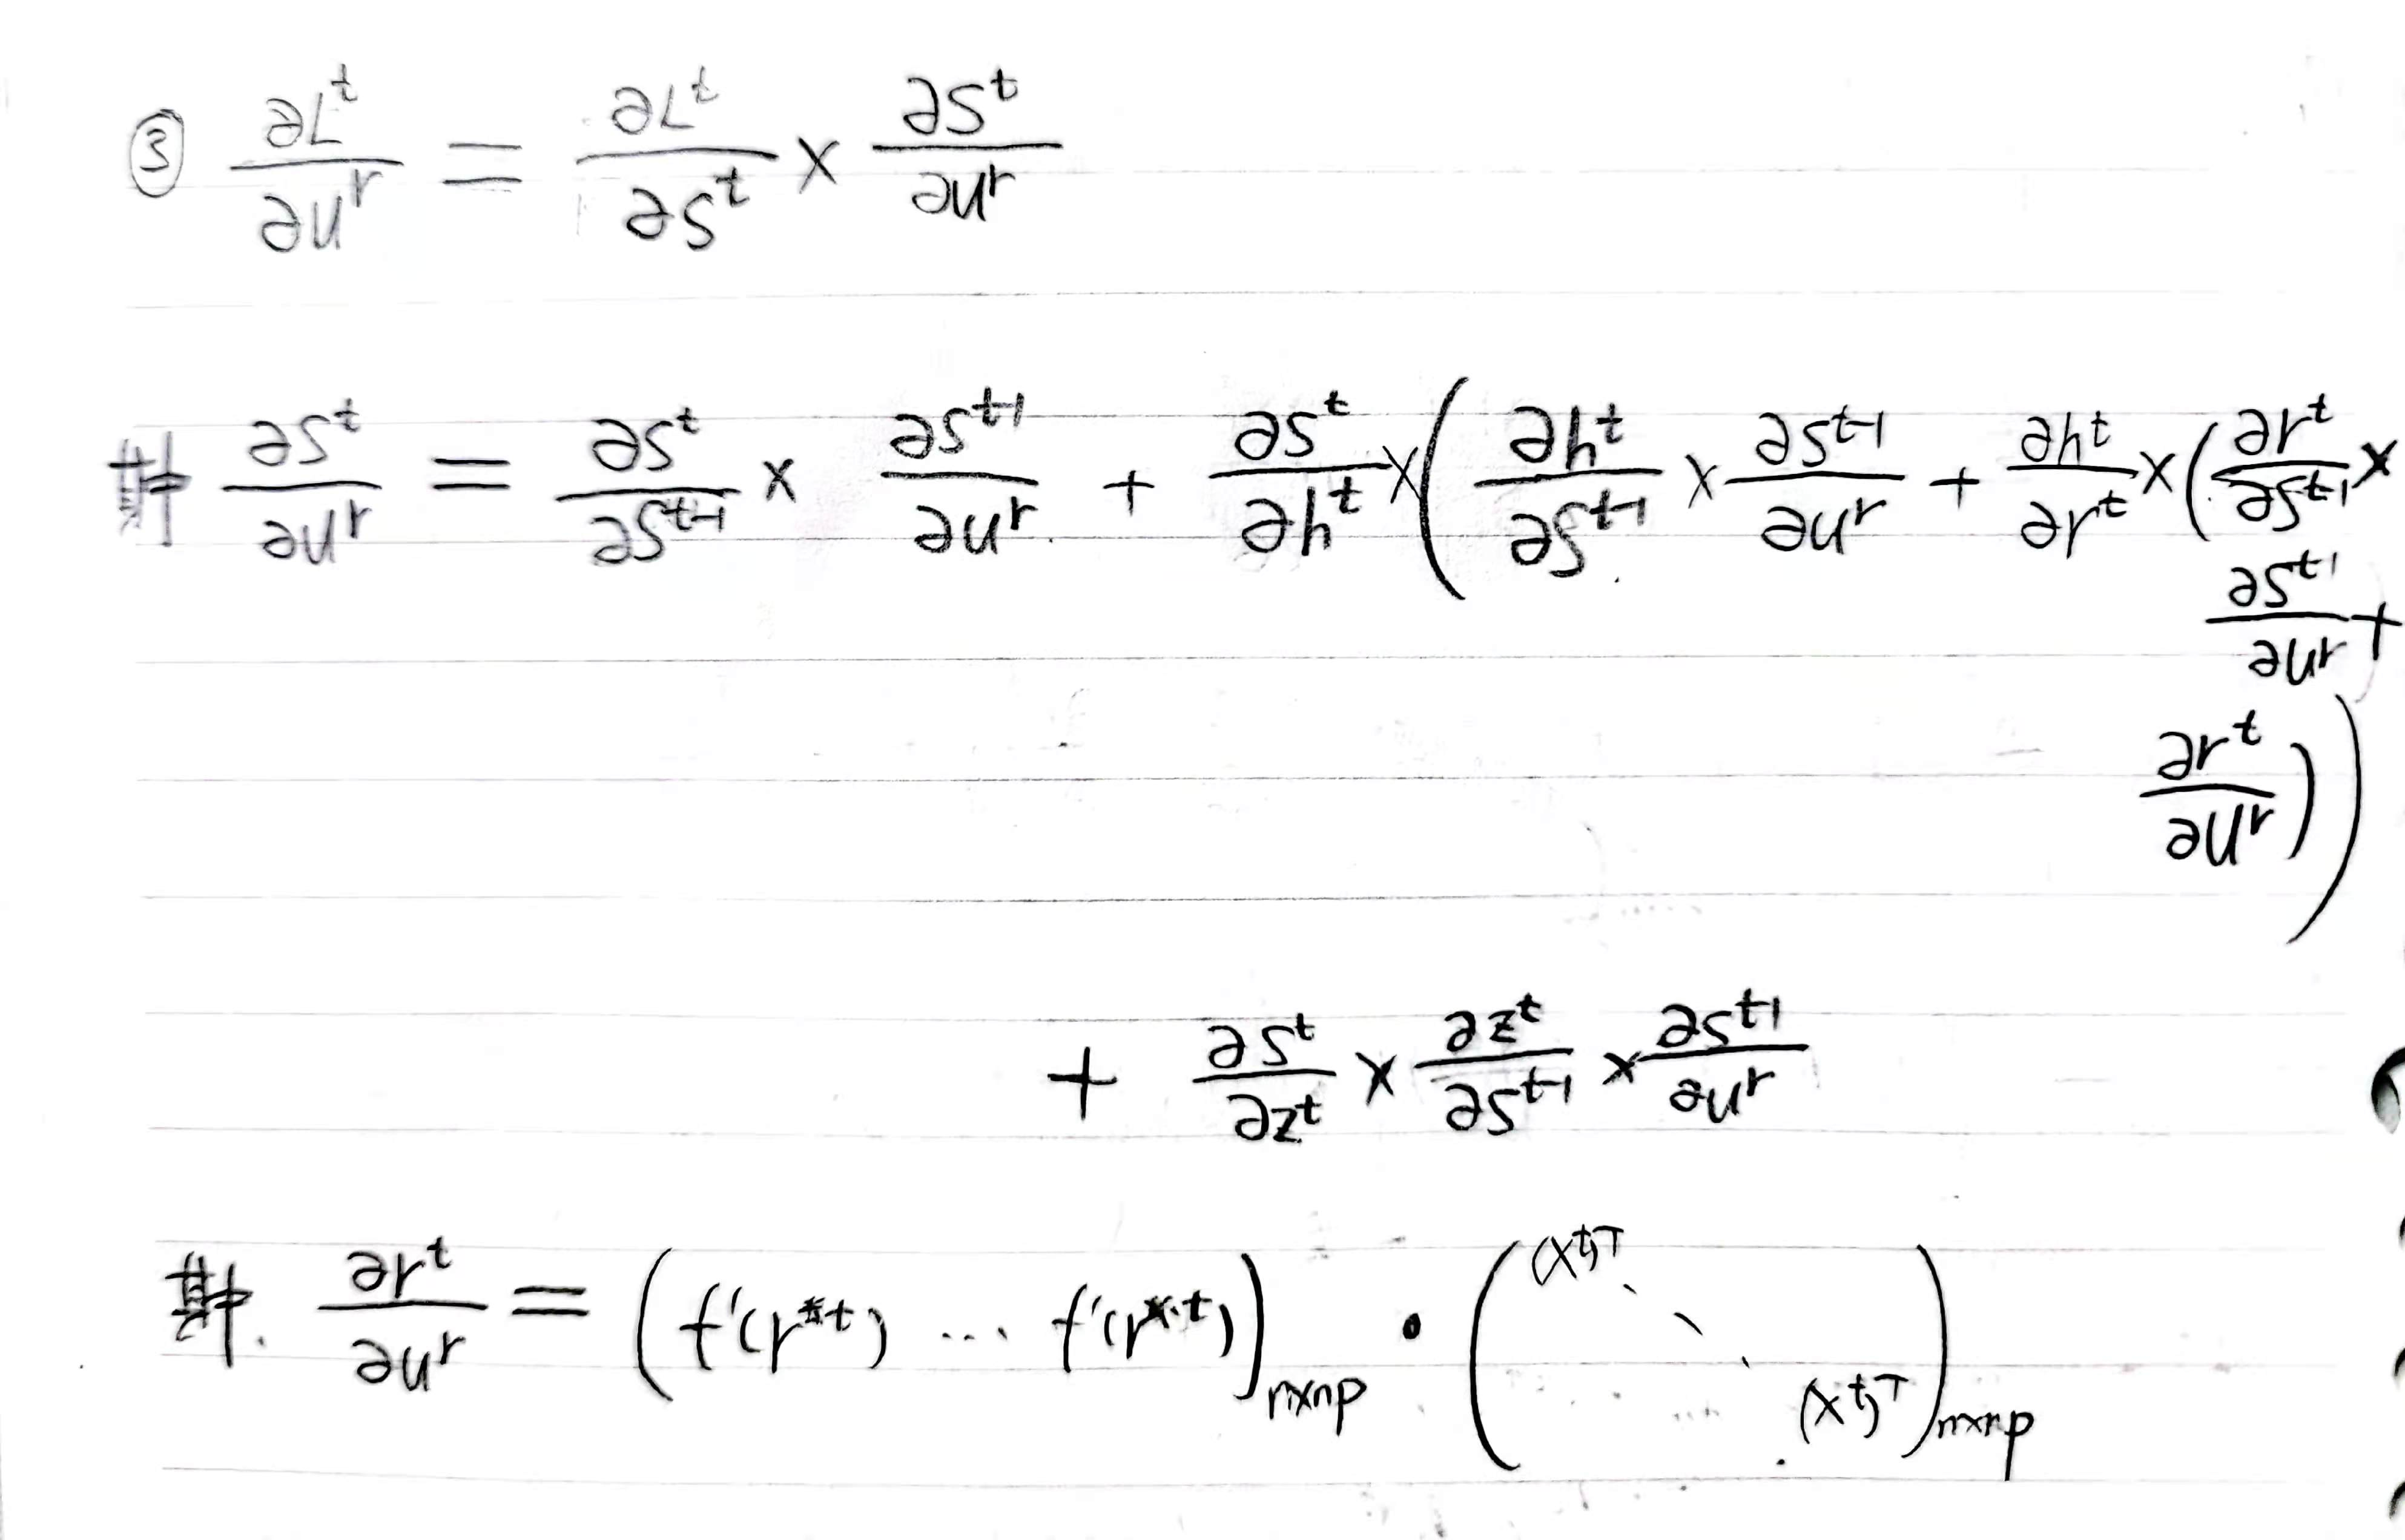 ③ ∂L^t/∂u^r = ∂L^t/∂s^t × ∂s^t/∂u^r
# ∂s^t/∂u^r = ∂s^t/∂s^{t-1} × ∂s^{t-1}/∂u^r + ∂s^t/∂h^t × ( ∂h^t/∂s^{t-1} × ∂s^{t-1}/∂u^r + ∂h^t/∂r^t × ( ∂r^t/∂s^{t-1} ×
∂s^{t-1}/∂u^r +
∂r^t/∂u^r ) )
+ ∂s^t/∂z^t × ∂z^t/∂s^{t-1} × ∂s^{t-1}/∂u^r
#. ∂r^t/∂u^r = ( f'(r^{*t}) ... f'(r^{*t}) )_{n×np} • ( (x^t)^T ⋱ (x^t)^T )_{n×np}